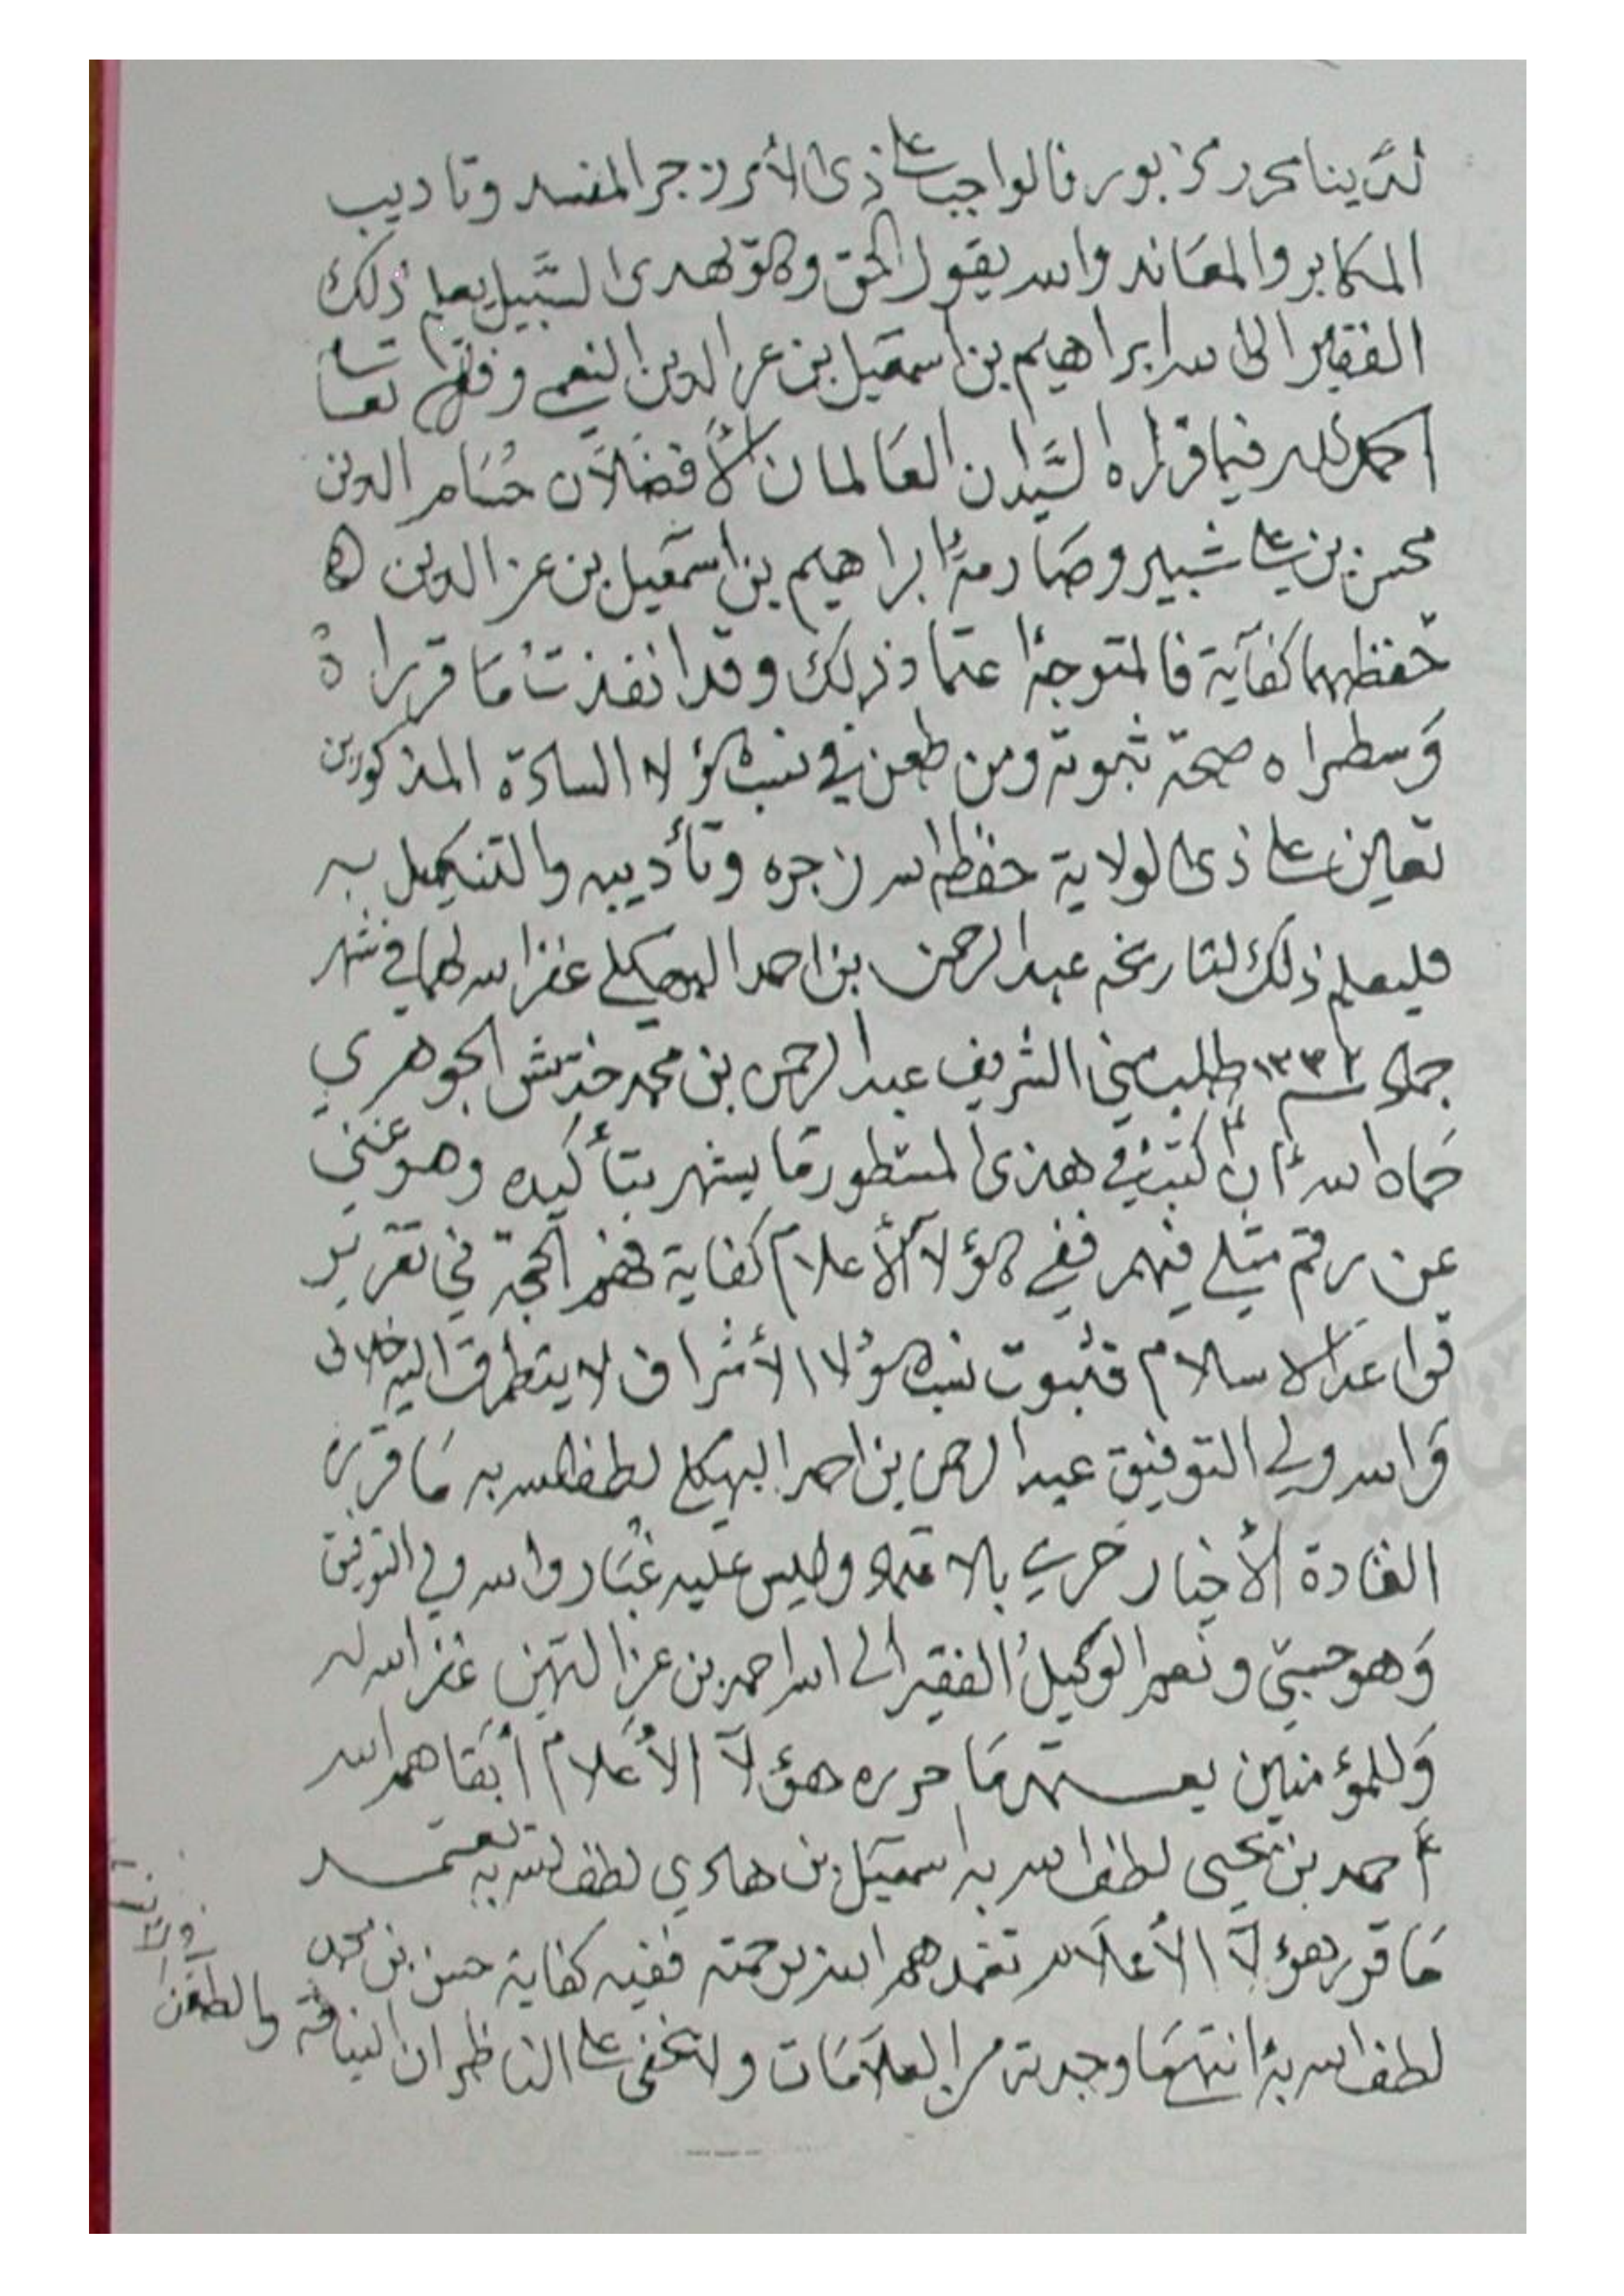 لدينا محرر مزبور فالواجب على ذي الأمر زجر المفسد وتاديب
المكابر والمعاند والله يقول الحق وهو يهدي السبيل يعلم ذلك
الفقير الى الله ابراهيم بن اسمعيل بن عز الدين النعمي وفقه الله تعالى
الحمد لله فيما قرراه السيدان العالمان الأفضلان حسام الدين
محسن بن علي شبير وصارمه ابراهيم بن اسمعيل بن عز الدين
حفظهما كفاية فالمتوجه اعتماد ذلك وقد انفذت ما قرراه
وسطراه صحة ثبوته ومن طعن في نسب هؤلاء السادة المذكورين
تعين على ذي الولاية حفظه الله زجره وتأديبه والتنكيل به
فليعلم ذلك لتاريخه عبد الرحمن بن احمد البهكلي غفر الله لهما في شهر
جماد طلب مني الشريف عبد الرحمن بن محمد الجوهري
حماه الله أن أكتب في هذي المسطور ما يشهر بتأكيده وهو غني
عن رقم مثلي فيهم ففي هؤلاء الأعلام كفاية فهم الحجة في تقرير
قواعد الاسلام فثبوت نسب هؤلاء الأشراف لا يتطرق اليه خلاف
والله ولي التوفيق عبد الرحمن بن احمد البهكلي لطف الله به ما قرره
القادة الأخيار حري بالاعتماد وليس عليه غبار والله ولي التوفيق
وهو حسبي ونعم الوكيل الفقير الى الله احمد بن عز الدين غفر الله له
وللمؤمنين يعتمد ما حرره هؤلاء الأعلام أبقاهم الله
أحمد بن يحيى لطف الله به اسمعيل بن هادي لطف الله به يعتمد
ما قرر هؤلاء الأعلام تغمدهم الله برحمته ففيه كفاية حسن بن محمد
لطف الله به انتهى ما وجدته من العلامات ولا تخفى على الناظر ان النيافة والطعن